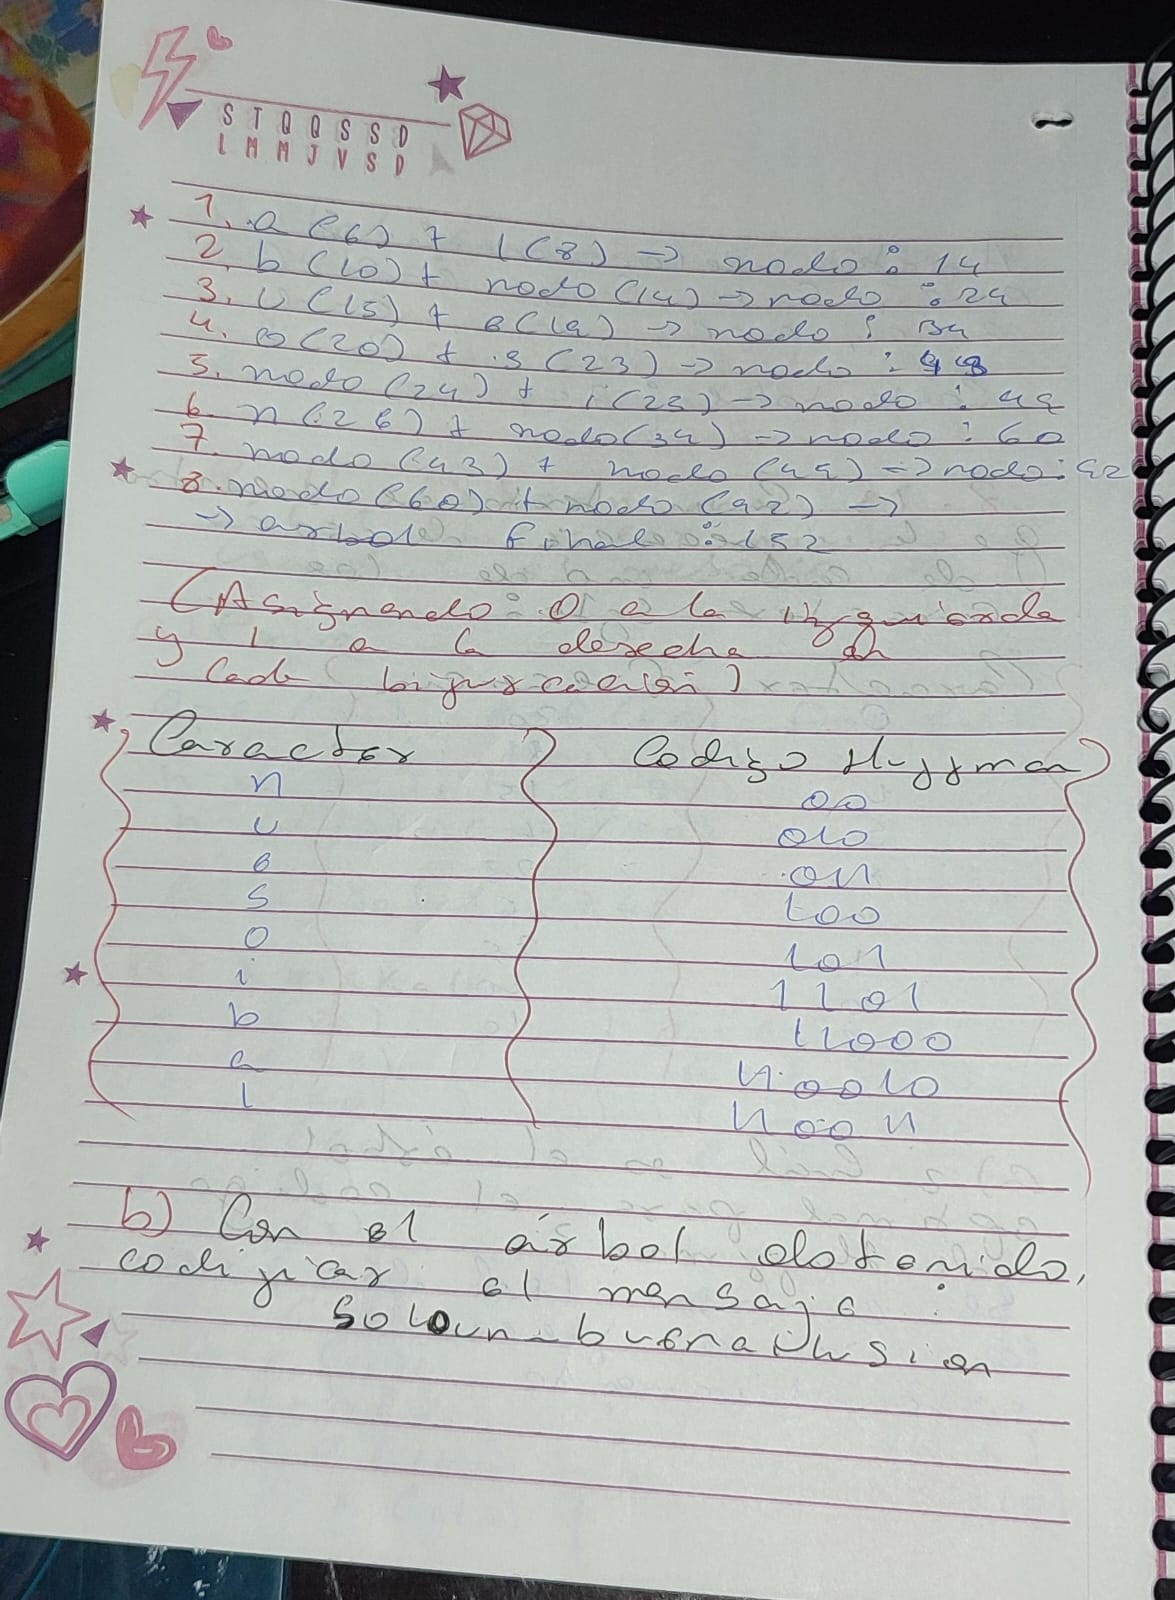 S T Q Q S S D
L M M J V S D
1. a (6) + l (8) → nodo : 14
2. b (10) + nodo (14) → nodo : 24
3. u (15) + e (19) → nodo : 34
4. o (20) + s (23) → nodo : 43
5. nodo (24) + i (25) → nodo : 49
6. n (26) + nodo (34) → nodo : 60
7. nodo (43) + nodo (49) → nodo : 92
8. nodo (60) + nodo (92) →
→ arbol final : 152
(Asignando : 0 a la izquierda
y 1 a la derecha en
cada bifurcación)
Caracter Codigo Huffman
n 00
u 010
e 011
s 100
o 101
i 1101
b 11000
a 110010
l 110011
b) Con el árbol obtenido,
codificar el mensaje :